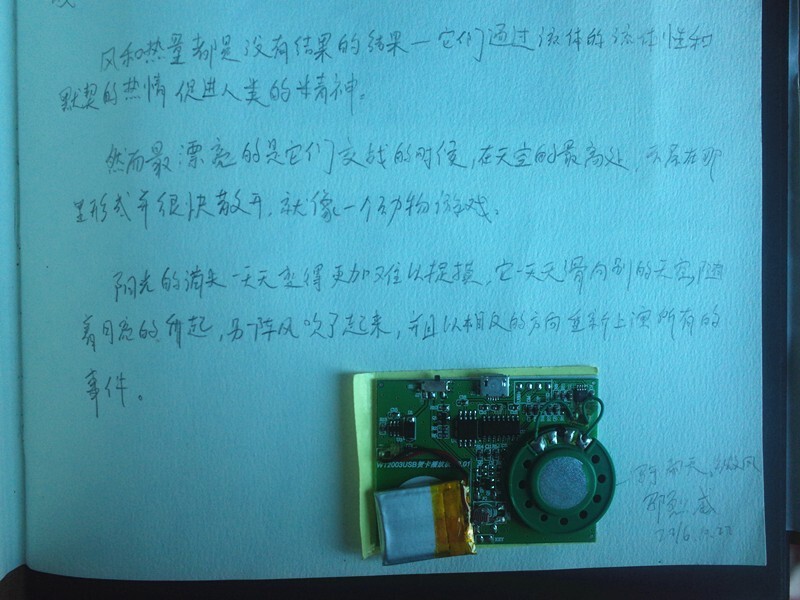 风和热量都是没有结果的结果—它们通过流体的流体性和
默契的热情促进人类的精神。
然而最漂亮的是它们交战的时候,在天空的最高处,云层在那
里形式并很快散开,就像一个动物游戏。
阳光的消失一天天变得更加难以捉摸,它一天天滑向别的天空,随
着月亮的升起,另一阵风吹了起来,并且以相反的方向重新上演所有的
事件。
WT2003USB贺卡模
天
微风
2016.10.22